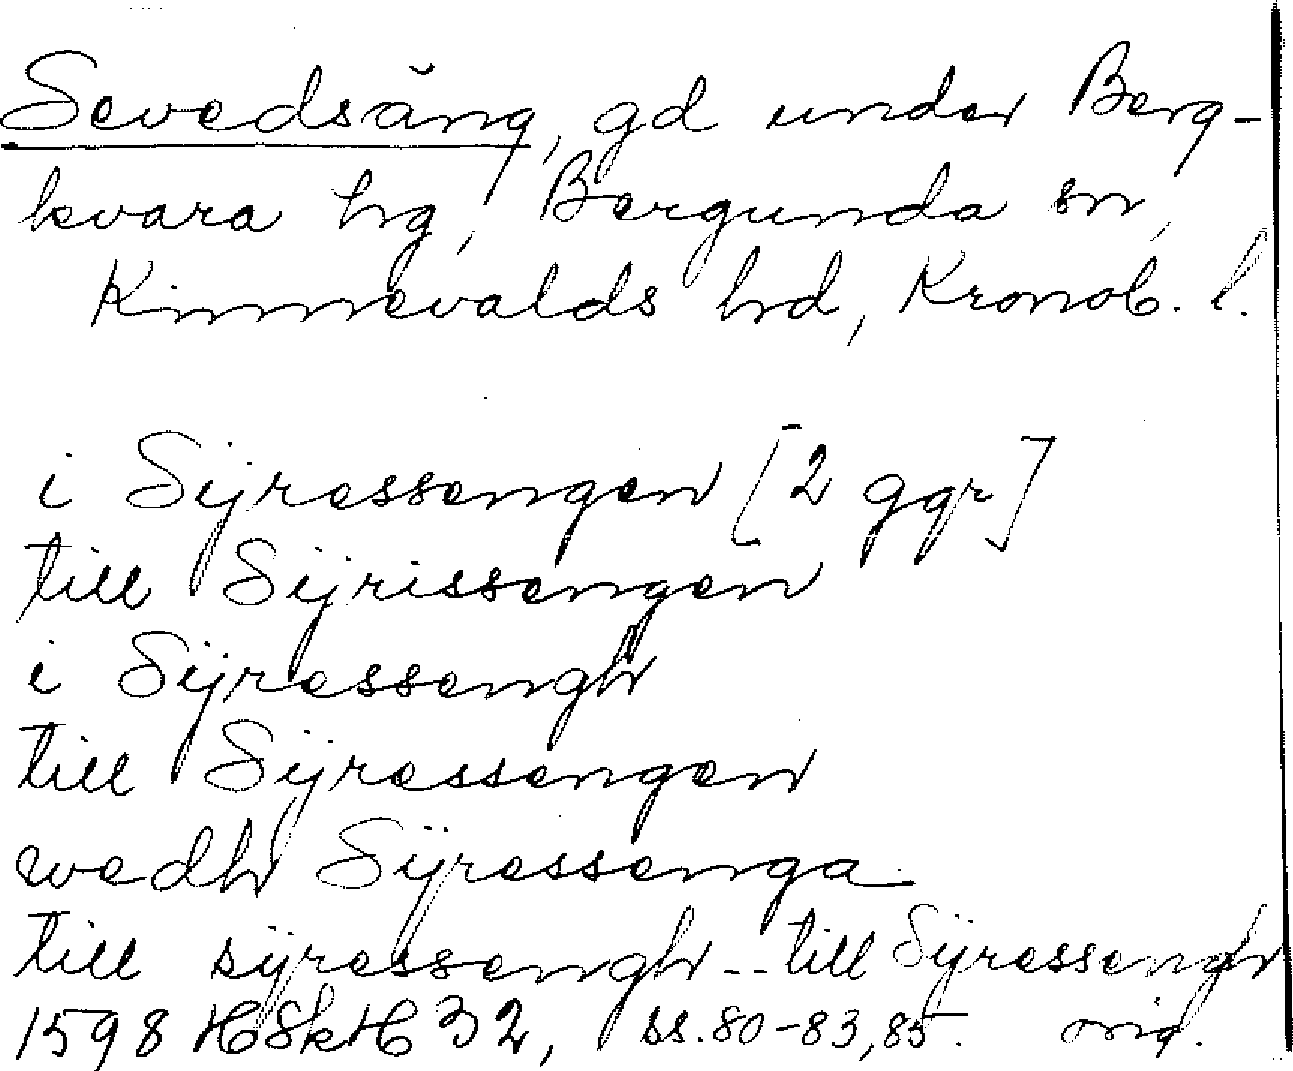 Sevedsäng, gd under Berg-
kvara hg, Bergunda sn,
Kinnevalds hd, Kronob. l.
i Sÿressengen [2 ggr]
till Sÿrissengen
i Sÿressengh
till Sÿressengen
wedh Sÿressenga
till sÿressengh -- till Sÿressengh
1598 HSkH 32, ss. 80-83, 85. orig.